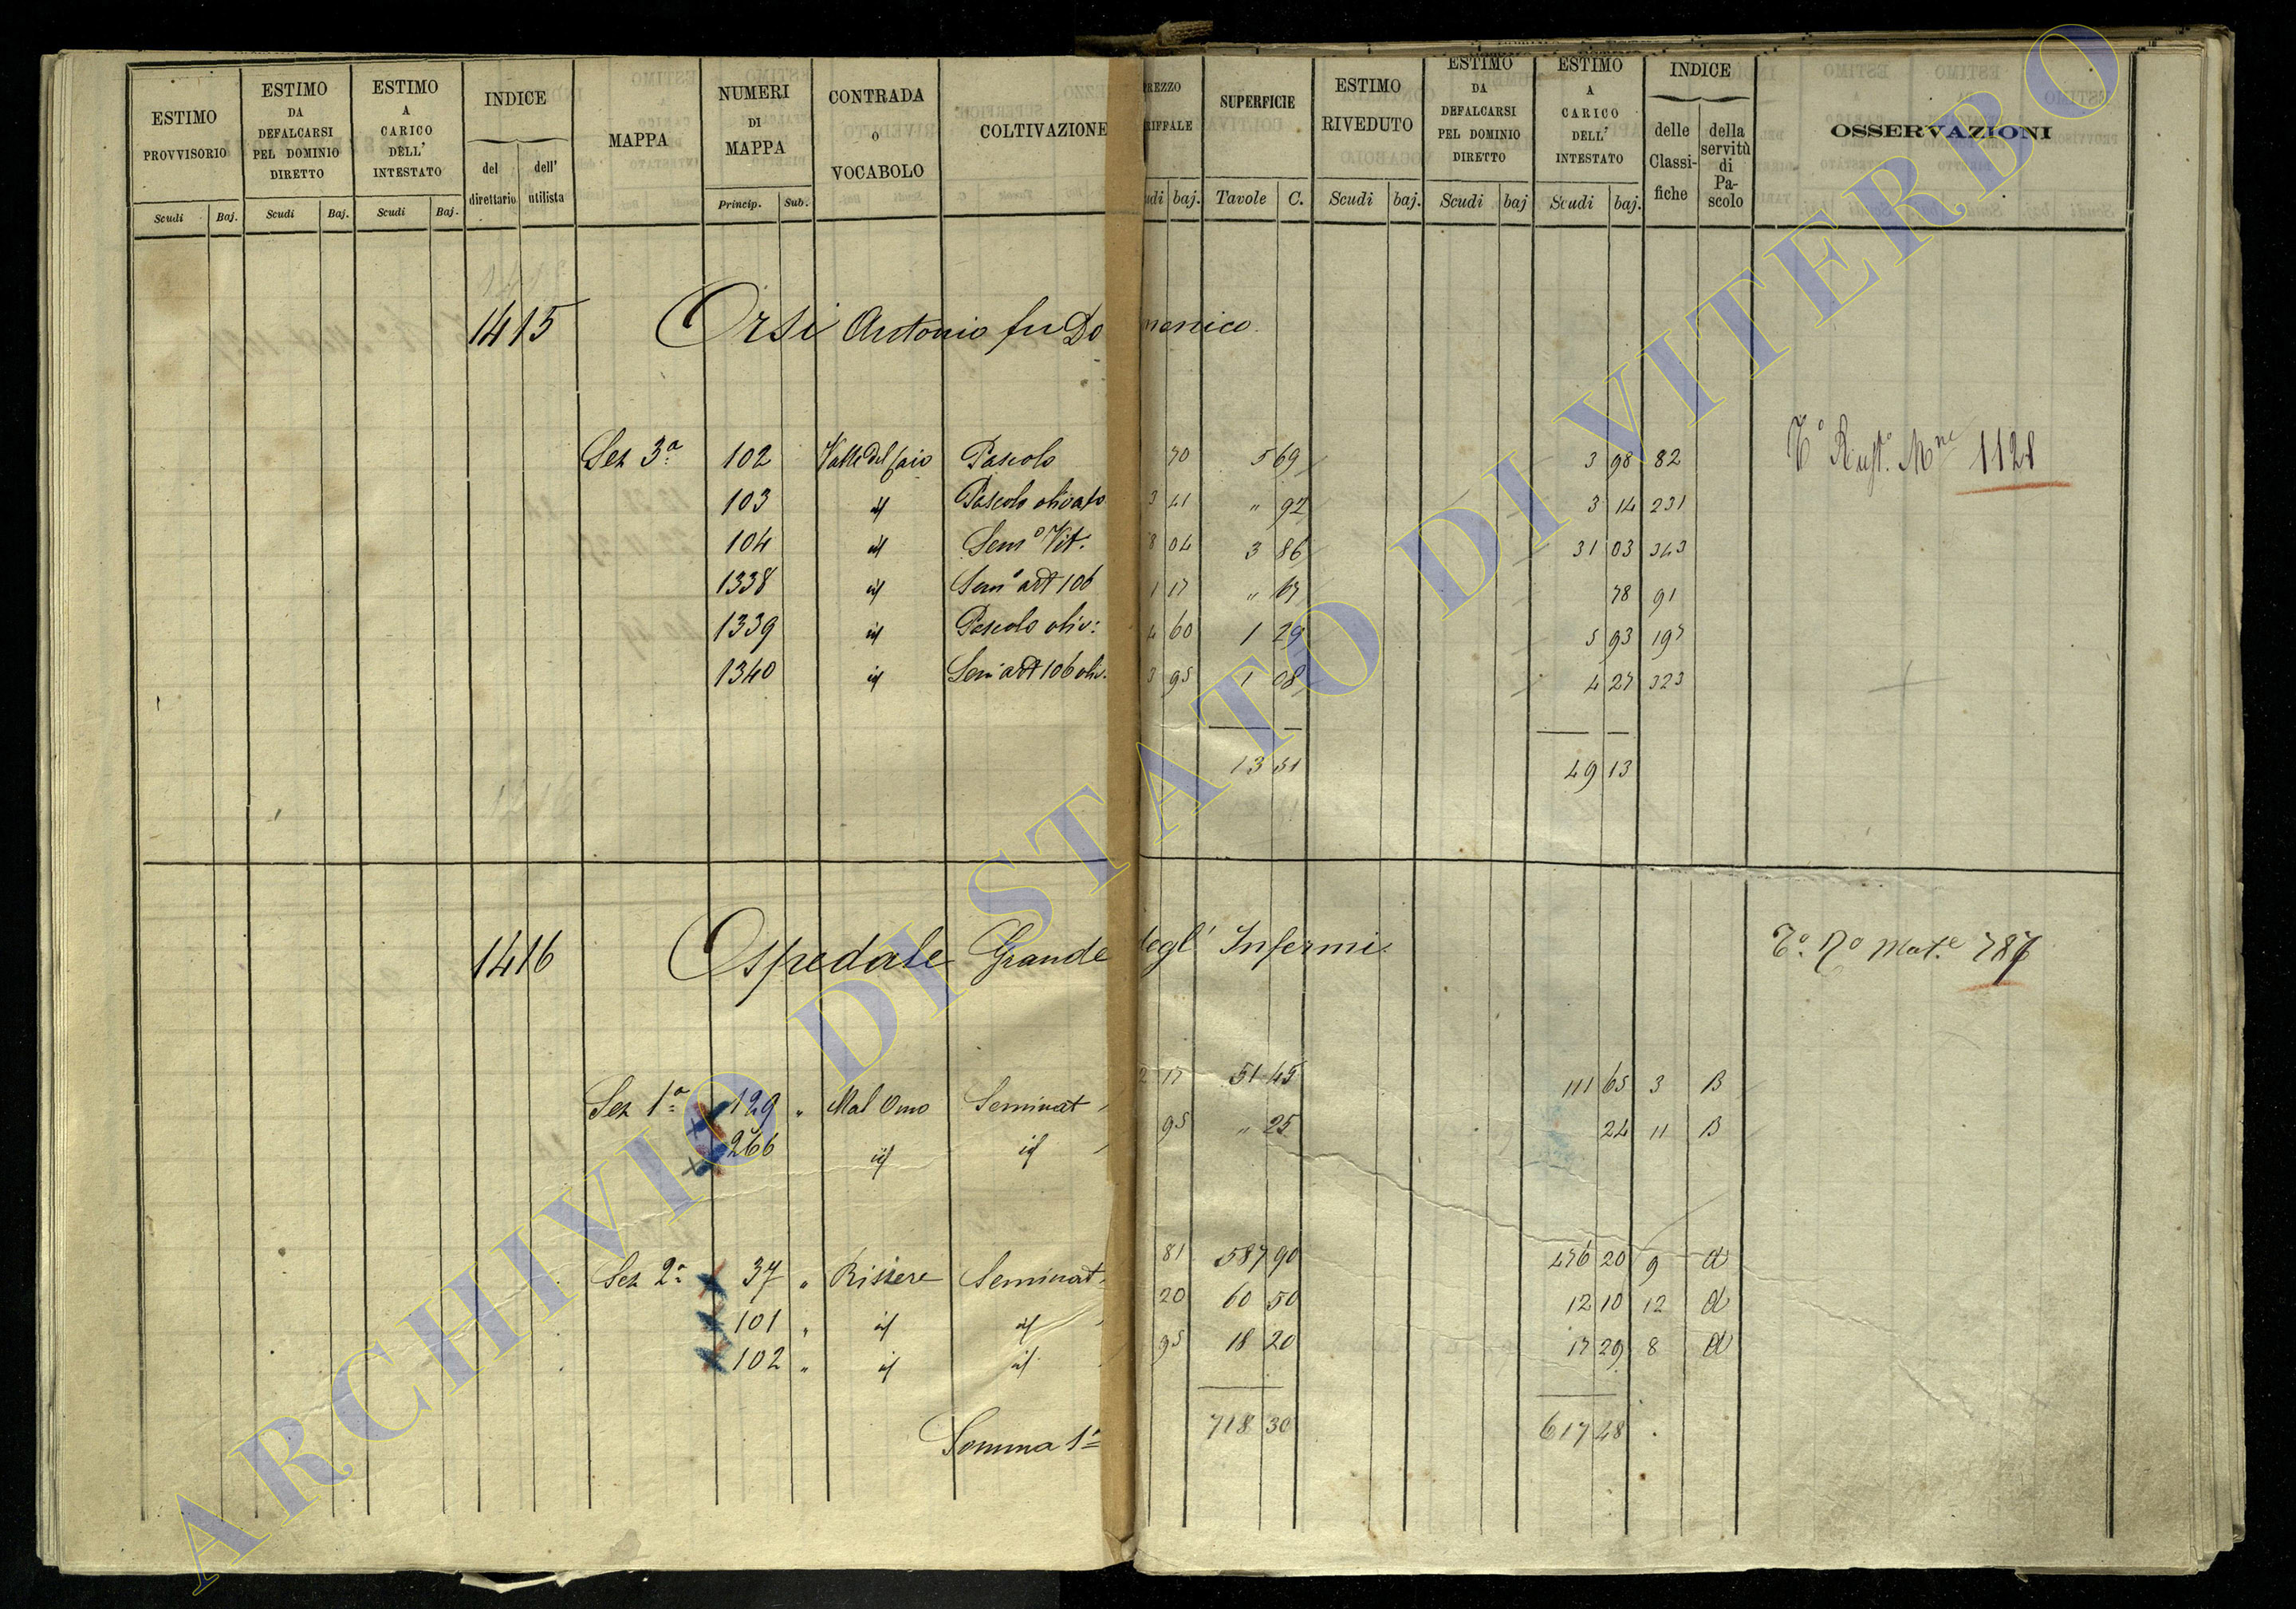 ESTIMO PROVVISORIO Scudi Baj.
ESTIMO DA DEFALCARSI PEL DOMINIO DIRETTO Scudi Baj.
ESTIMO A CARICO DELL' INTESTATO Scudi Baj.
INDICE del direttario dell' utilista
MAPPA
NUMERI DI MAPPA Princip. Sub.
CONTRADA O VOCABOLO
COLTIVAZIONE
REZZO RIFFALE udi baj.
SUPERFICIE Tavole C.
ESTIMO RIVEDUTO Scudi baj.
ESTIMO DA DEFALCARSI PEL DOMINIO DIRETTO Scudi baj
ESTIMO A CARICO DELL' INTESTATO Scudi baj.
INDICE delle Classi-fiche della servitù di Pa-scolo
OSSERVAZIONI
1415 Orsi Antonio fu Domenico
Sez 3a 102 Valle del Pascolo 70 5 69 3 98 82 1128
103 id Pascolo olivato 3 41 " 92 3 14 231
104 id Semo Vit. 8 04 3 86 31 03 343
1338 id Semo art 106 1 17 " 67 78 91
1339 id Pascolo oliv: 4 60 1 29 5 93 197
1340 id Semo art 106 oliv. 3 95 1 08 4 27 323
13 51 49 13
1416 Ospedale Grande degl' Infermi
To Ro Mate 787
Sez 1a 129 " Mal Omo Seminat 2 17 51 45 111 65 3 B
266 id id 95 " 25 24 11 B
Sez 2a 37 " Risiere Seminat 81 587 90 476 20 9 a
101 " id id 20 60 50 12 10 12 a
102 " id id 95 18 20 17 29 8 a
Somma 1a 718 30 617 48
ARCHIVIO DI STATO DI VITERBO